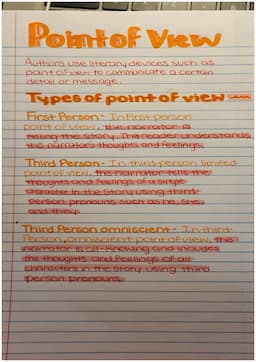 Point of View
Authors use literary devices such as
point of view to communicate a certain
detail or message.
Types of point of view
First Person - In first person
point of view, the narrator is
telling the story. The reader understands
the narrator's thoughts and feelings.
Third Person - In third person limited
point of view, the narrator tells the
thoughts and feelings of a single
character in the story using third
person pronouns such as he, she,
and they.
Third Person omniscient - In third
Person omniscient point of view, the
narrator is all-knowing and includes
the thoughts and feelings of all
characters in the story using third
person pronouns.